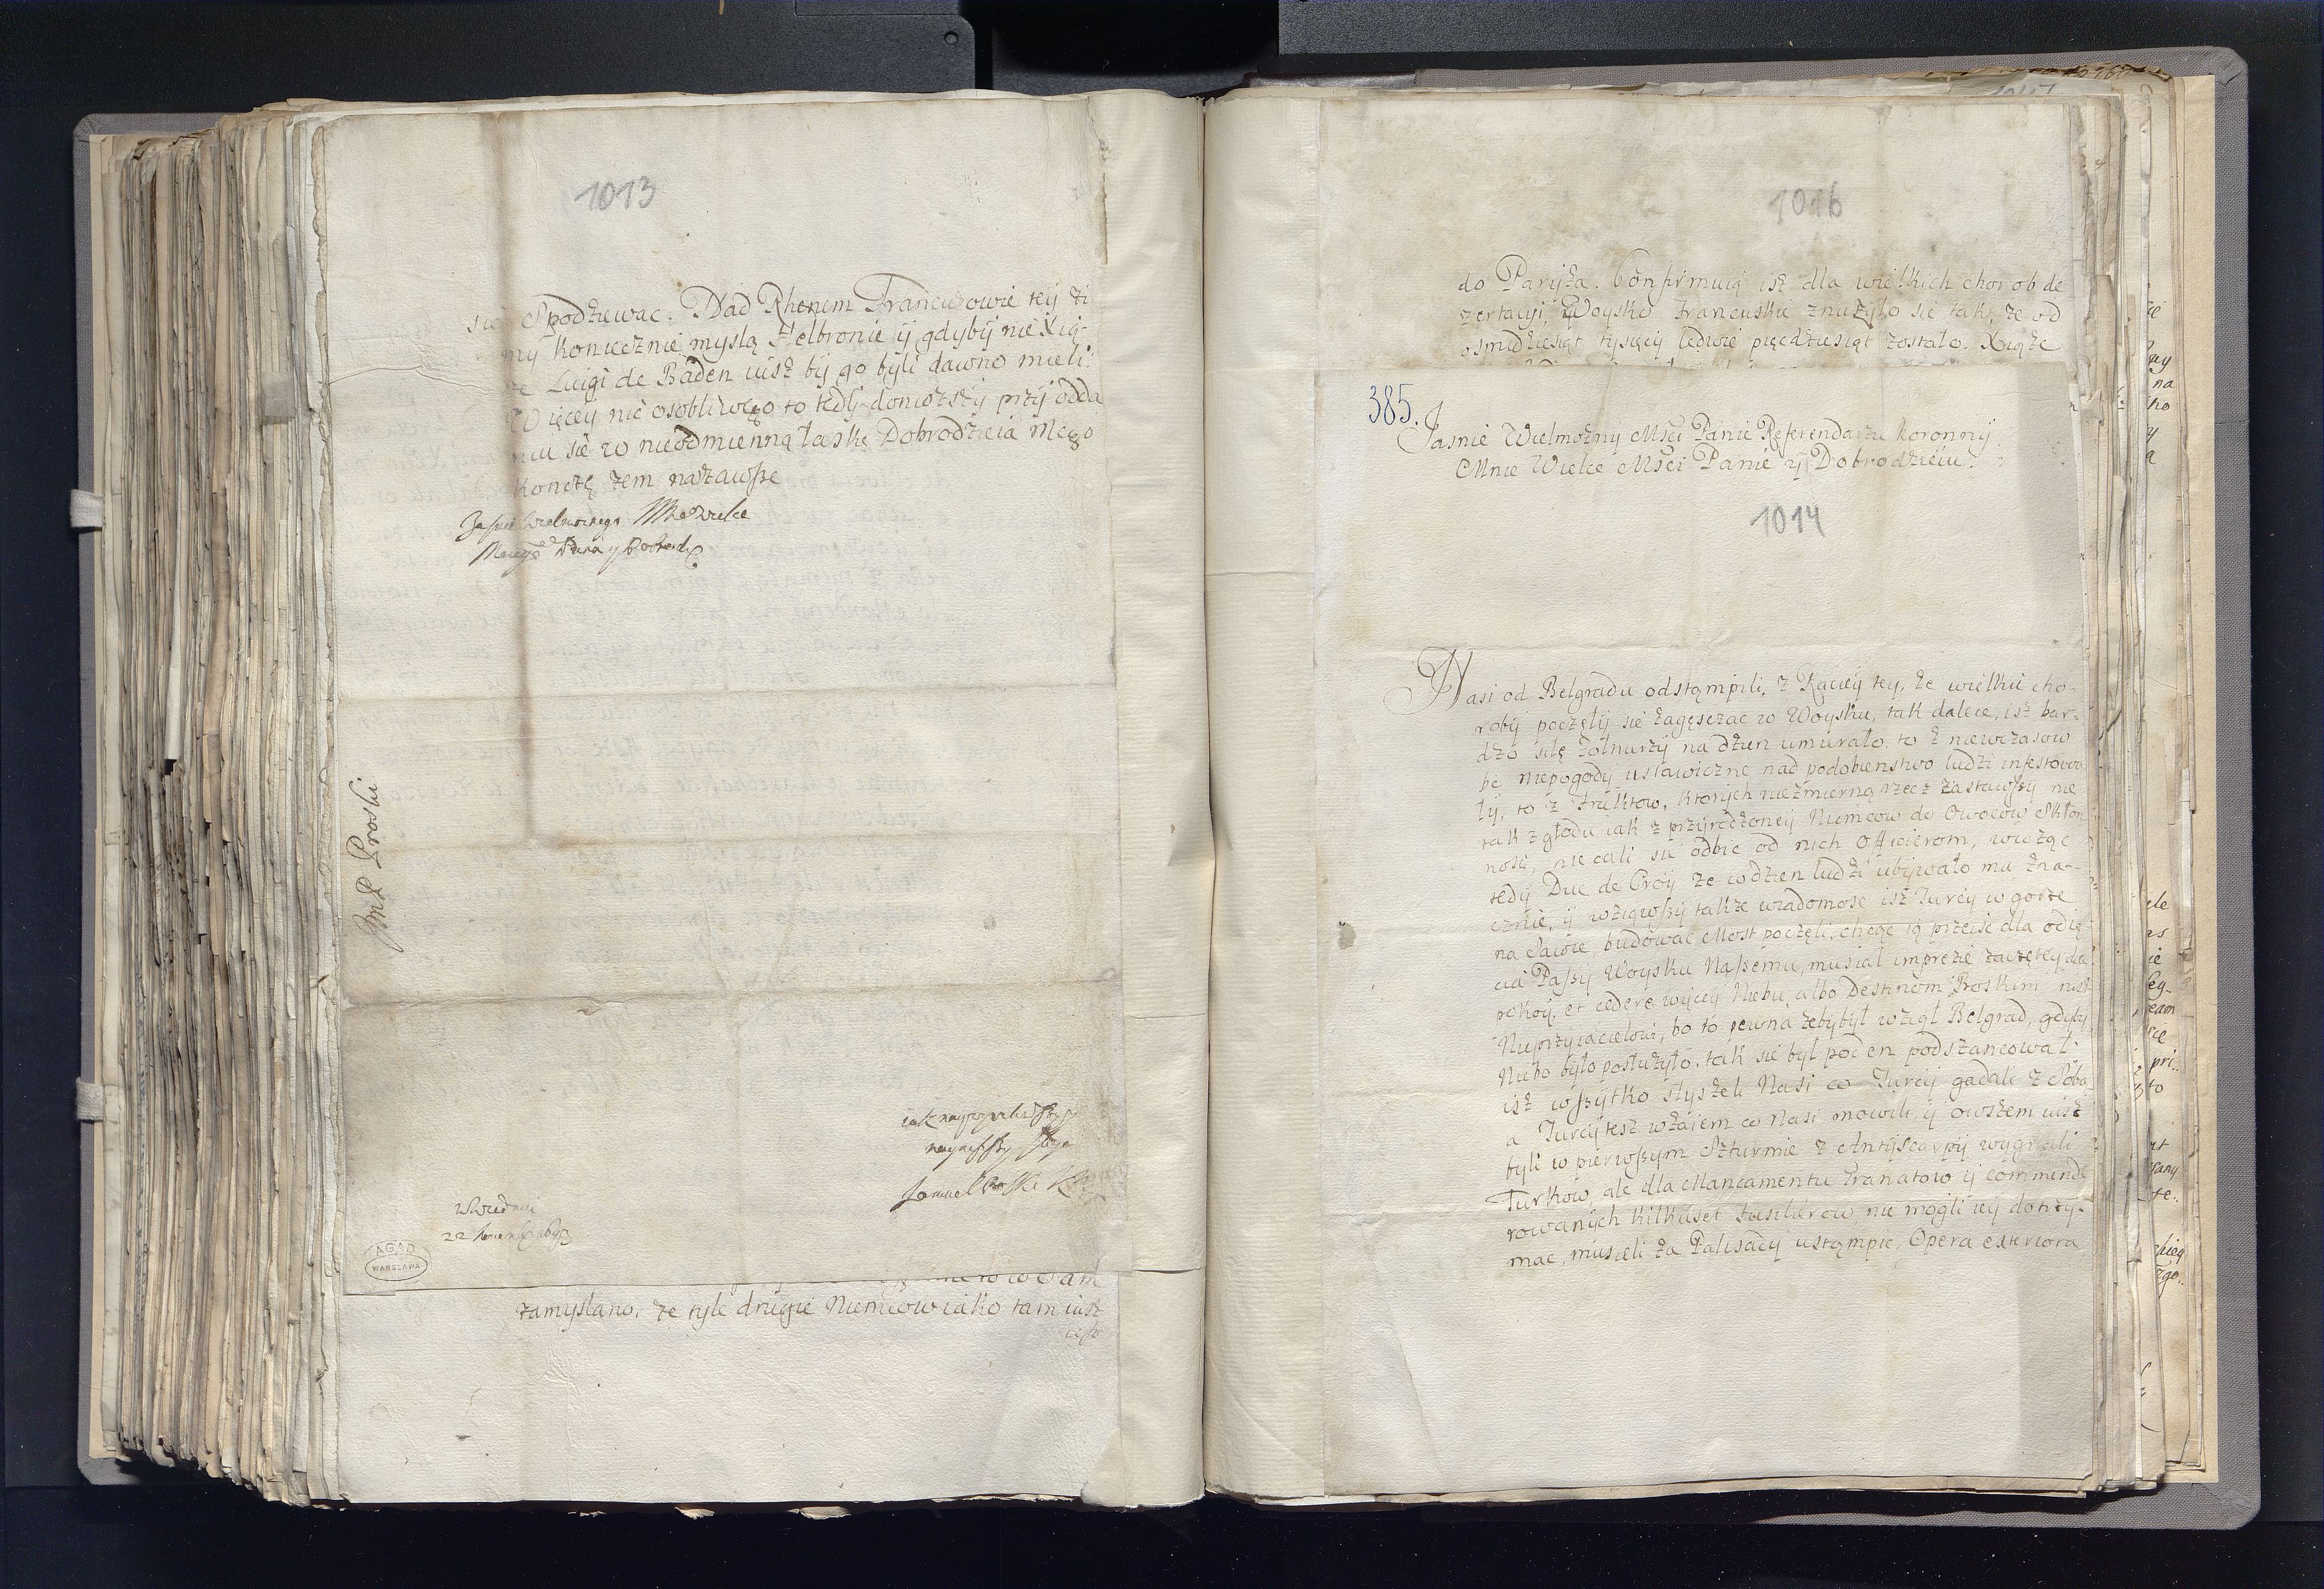 1013
się Spodziewac. Nad Rhenem Francuzowie teÿ zi
mÿ koniecznie myslą Helbronie ÿ gdybÿ nie Xią-
że Luigi de Baden iusz bÿ go byli dawno mieli.
Więcey nic osobliwego to tedÿ doniozszÿ przÿ odda
niu się w nieodmienną łaskę Dobrodzieia Mego
konczę zem nazawsze
Jasnie Wielmoznego
Pana y
Jmć P Proski
iak
Samuel Proski
w Wiedniu
22
AGAD
WARSZAWA
zamyslano, ze tyle drugie Niemcow iako tam iusz
1016
do Paryża. Confirmuią isz dla wielkich chorob de
zertacÿi, Woysko Francuskie znużyło się tak, że od
osmidziesiąt tysięcÿ ledwie pięcdziesiąt zostało. Xiąże
385.
Jasnie Wielmożny Mści Panie Referendarzu Koronnÿ
Mnie Wielce Mści Panie ÿ Dobrodzieiu.
1014
Nasi od Belgradu odstąmpili, z Racieÿ tey, że wielkie cho-
robÿ poczęłÿ się zagęszczac w Woysku, tak dalece, isz bar-
dzo siłę żołnierzÿ na dzien umierało. to z niewczasow
bo niepogody ustawiczne nad podobienstwo ludzi infestowa
łÿ, to z Fruktow, ktorych niezmierną rzecz zastawszÿ nie
tak z głodu iak z przÿrodzoneÿ Niemcow do Owocow Skłon
nosci, nie dali się odbic od nich Officierom, widząc
tedÿ Duc de Croÿ ze w dzien ludzi ubÿwało mu zna-
cznie, ÿ wziąwszÿ takze wiadomosc isz Turcÿ w gorze
na Sawie, budowac Most poczęli, chcąc ią przeisc dla odię
cia Passÿ Woysku Naszemu, musiał imprezie zaczęteÿ da
pokoÿ, et cedere więceÿ Niebu, albo Destinom Boskim nisz
Nieprzÿiacielowi, bo to pewna żebÿ bÿł wziął Belgrad, gdÿbÿ
Niebo bÿło posłużÿło, tak się bÿł pod en podszancował.
isz wszÿtko słÿszeli Nasi co Turcÿ gadali z Sobą
a Turcÿ tesz wzaiem co Nasi mowili, ÿ owszem iusz
bÿli w pierwszÿm Szturmie z Antÿscarpÿ wygnali
Turkow, ale dla Mancamentu Granatow ÿ commende
rowanÿch kilkuset Fusilierow, nie mogli ieÿ dotrzÿ-
mac, musieli za Palisadÿ ustąmpic, Opera exteriora